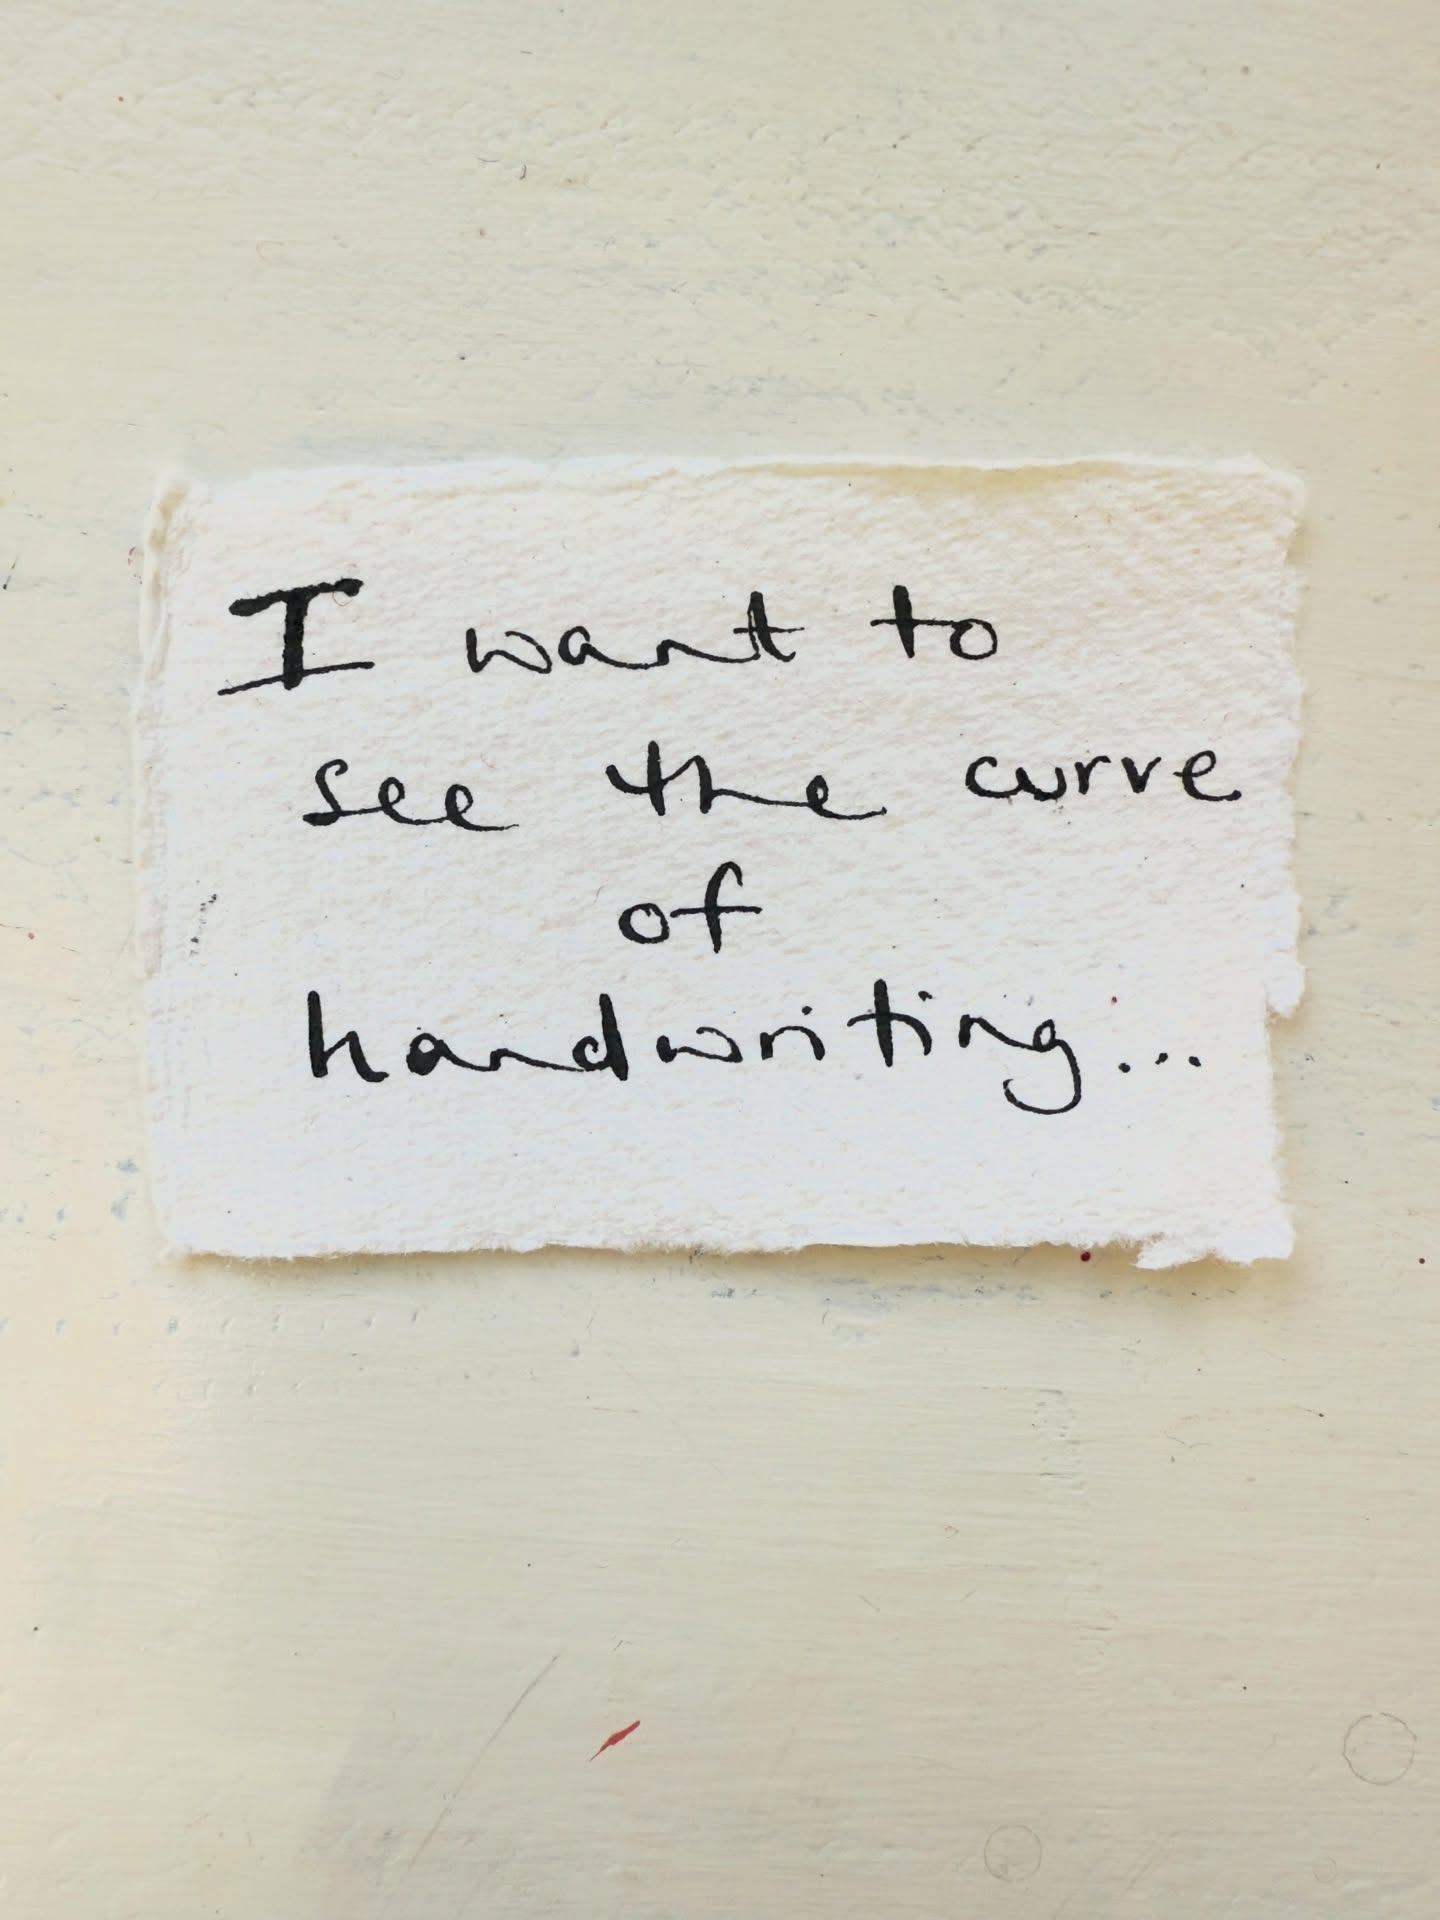 I want to
see the curve
of
handwriting...